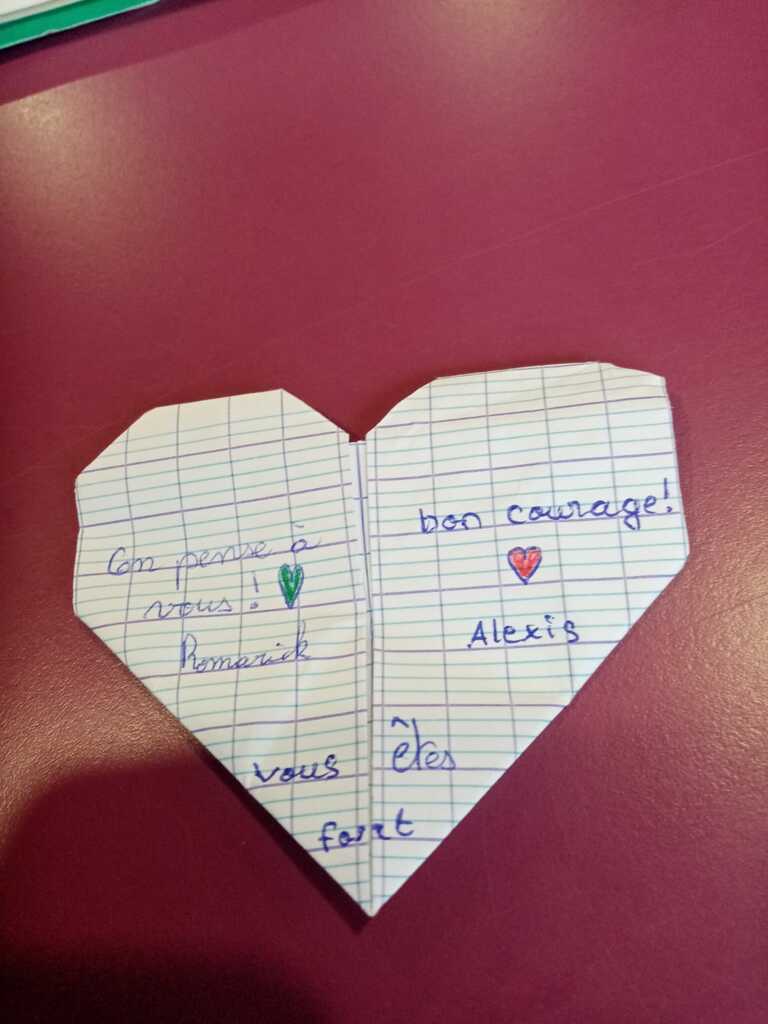 On pense à
vous !
Romarick
bon courage !
Alexis
vous êtes
fort